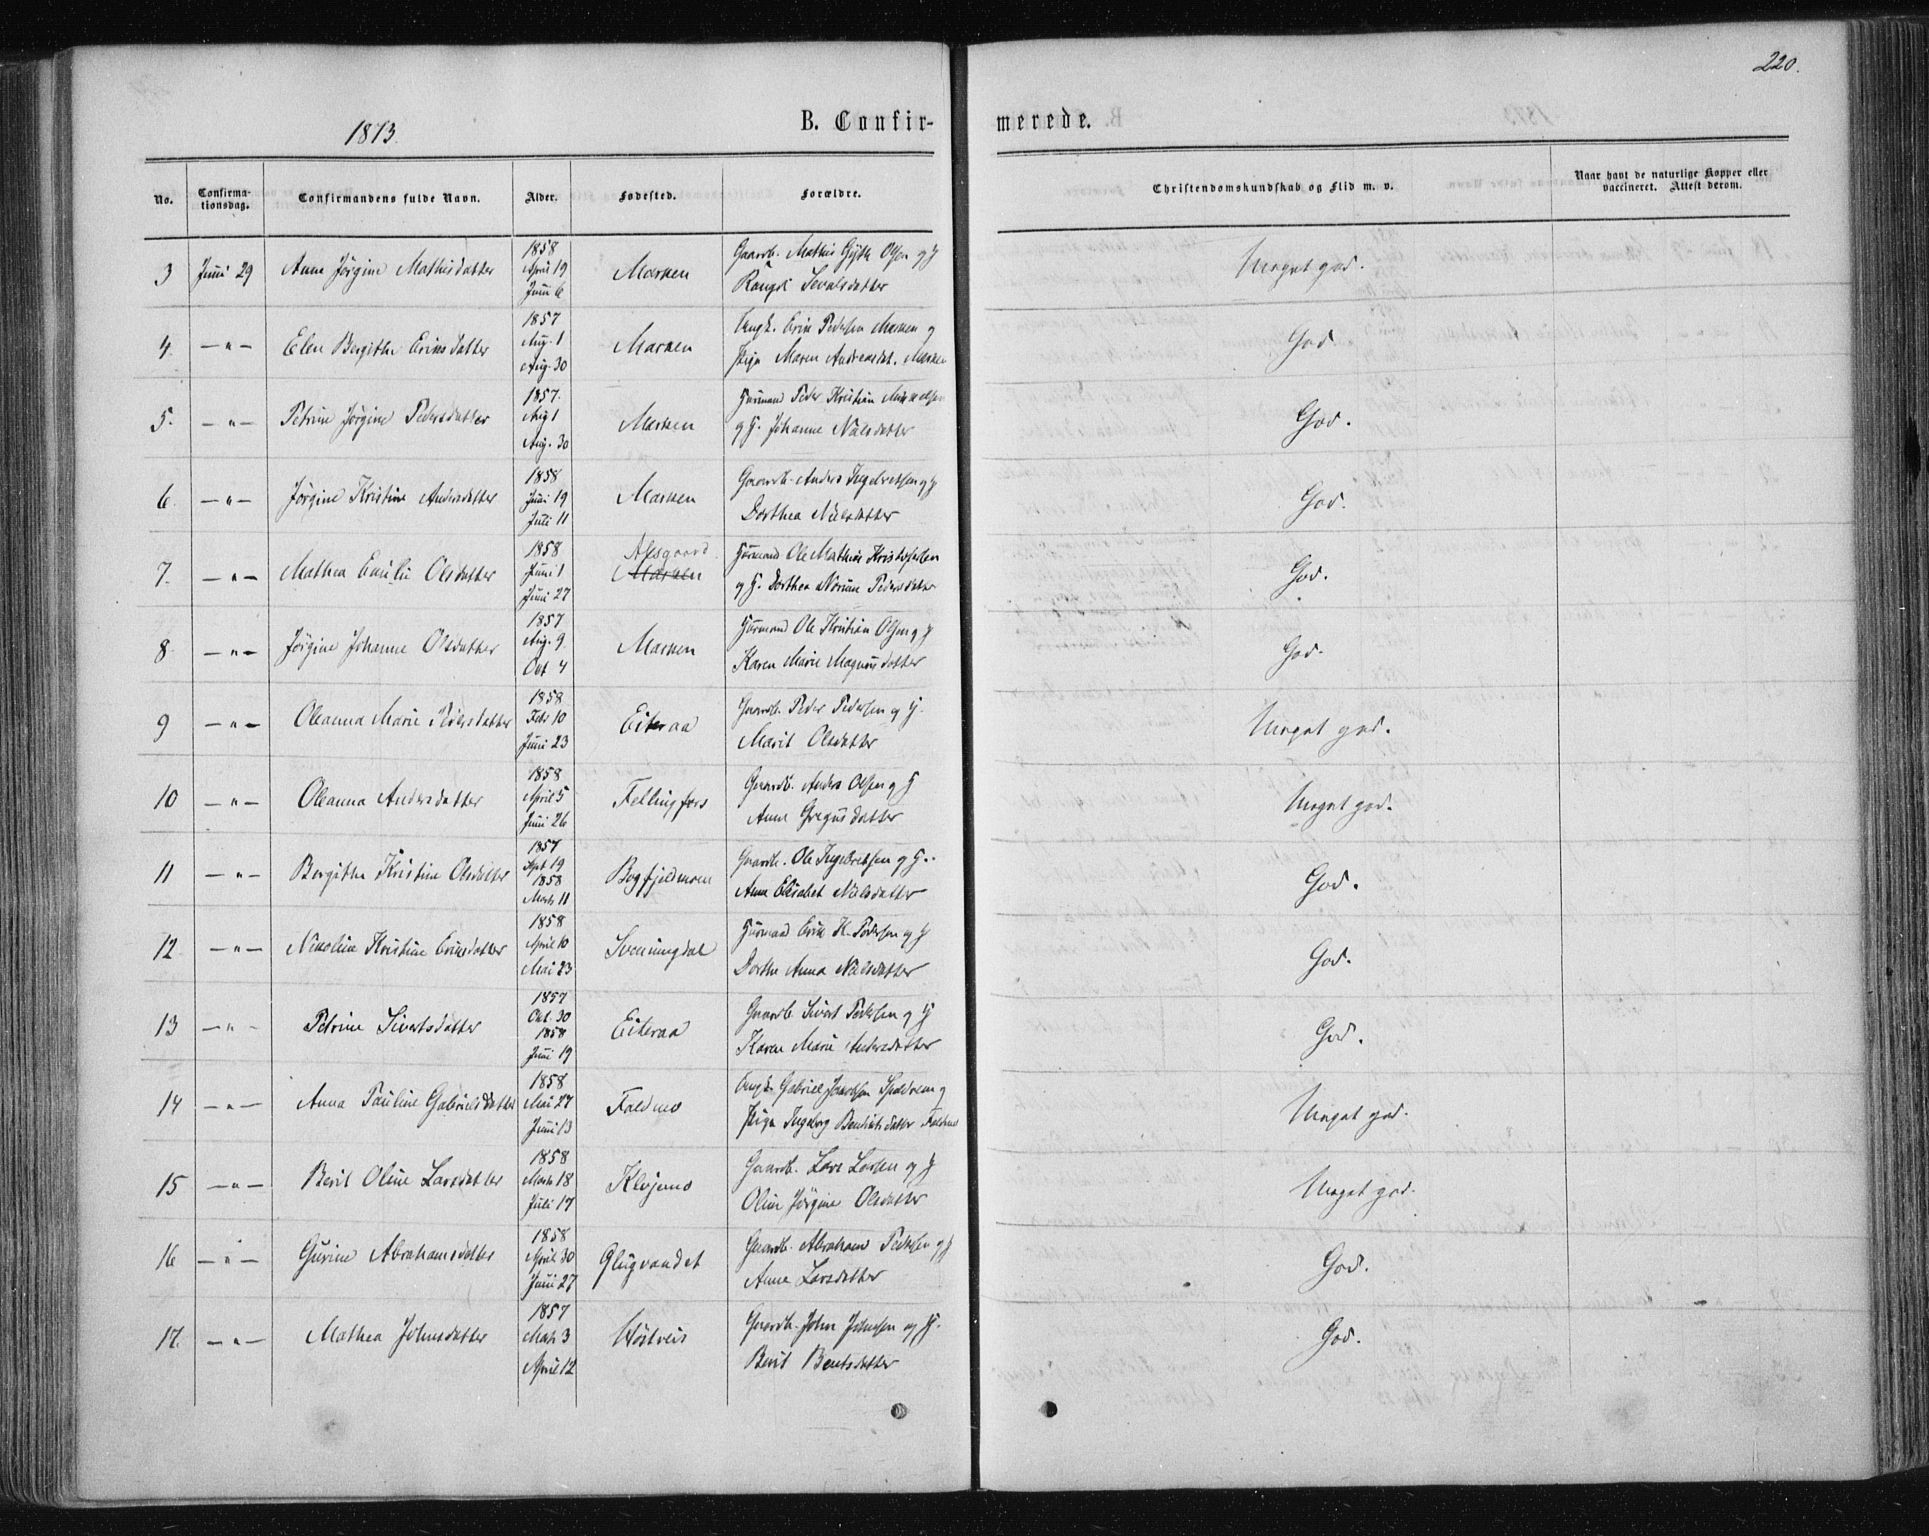 220.
1873.
B. Confir-
merede.
No.
Confirma-
tionsdag.
Confirmandens fulde Navn.
Alder.
Fødested.
Forældre.
Christendomskundskab og Flid m. v.
Naar havt de naturlige Kopper eller
vaccineret. Attest derom.
3 Juni 29 Anne Jørgine Mathisdatter 1858 April 19 Juni 6 Marken Gaardb. Mathis Olsen og H Sevalsdatter Meget god.
4. — " — Elen Bergithe Eriksdatter 1857 Aug. 1 Aug. 30 Marken Ungk. Erik Pedersen Marken og Pige Maren Andreasdat. Marken God
5. — " — Petrine Jørgine Pedersdatter 1857. Aug 1 Aug. 30 Marken Huusmand Peder Kristian Mikkelsen og H. Johanne Nilsdatter God.
6. — " — Jørgine Kristine Andersdatter 1858 Juni 19 Juli 11 Marken Gaardb. Anders Ingebretsen og H Dorthea Nilsdatter God.
7. — " — Mathea Emilie Olsdatter 1858 Juni 1 Juni 27 Alsgaard Marken Huusmand Ole Mathias Kristofersen og H. Dorthea Norine Pedersdatter God.
8 — " — Jørgine Johanne Olsdatter 1857 Aug. 9 Oct 4 Marken Huusmand Ole Kristian Olsen og H Karen Marie Magnusdatter God.
9 — " — Oleanna Marie Pedersdatter 1858 Febr 10 Juni 23 Eiteraa Gaardb. Peder Pedersen og H. Marit Olsdatter Meget god.
10 — " — Oleanna Andersdatter 1858 April 5 Juni 26 Fellingfors Gaardb. Anders Olsen og H Anne Gregusdatter Meget god.
11 — " — Bergitha Kristine Olsdatter 1857 Sept 19 1858 Marts 11 Bogfjeldmoen Gaardb. Ole Ingebretsen og H. Anne Elisabet Nilsdatter God.
12 — " — Nikoline Kristine Eriksdatter 1858 April 10 Mai 23 Svenningdal Huusmand Erik K. Pedersen og H Dorthe Anna Nilsdatter God.
13 — " — Petrine Sivertsdatter 1857 Okt. 30 1858 Juni 19 Eiteraa Gaardb. Sivert Pedersen og H Karen Marie Andersdatter God.
14 — " — Anna Pauline Gabrielsdatter 1858 Mai 27 Juni 13 Faldmo Ungk. Gabriel Jakobsen og Pige Ingeborg Bentsdatter Faldmo Meget god.
15 — " — Berit Oline Larsdatter 1858 Marts 18 Juli 17 Klojemo Gaardb. Lars Larsen og H Oline Jørgine Olsdatter Meget god.
16 — " — Gurine Abrahamsdatter 1858 April 30 Juni 27 Glugvandet Gaardb. Abraham Pedersen og H Anne Larsdatter God.
17. — " — Mathea Johnsdatter 1857 Marts 3 April 12 Gaardb. John Johnsen og H. Berit Bentsdatter God.